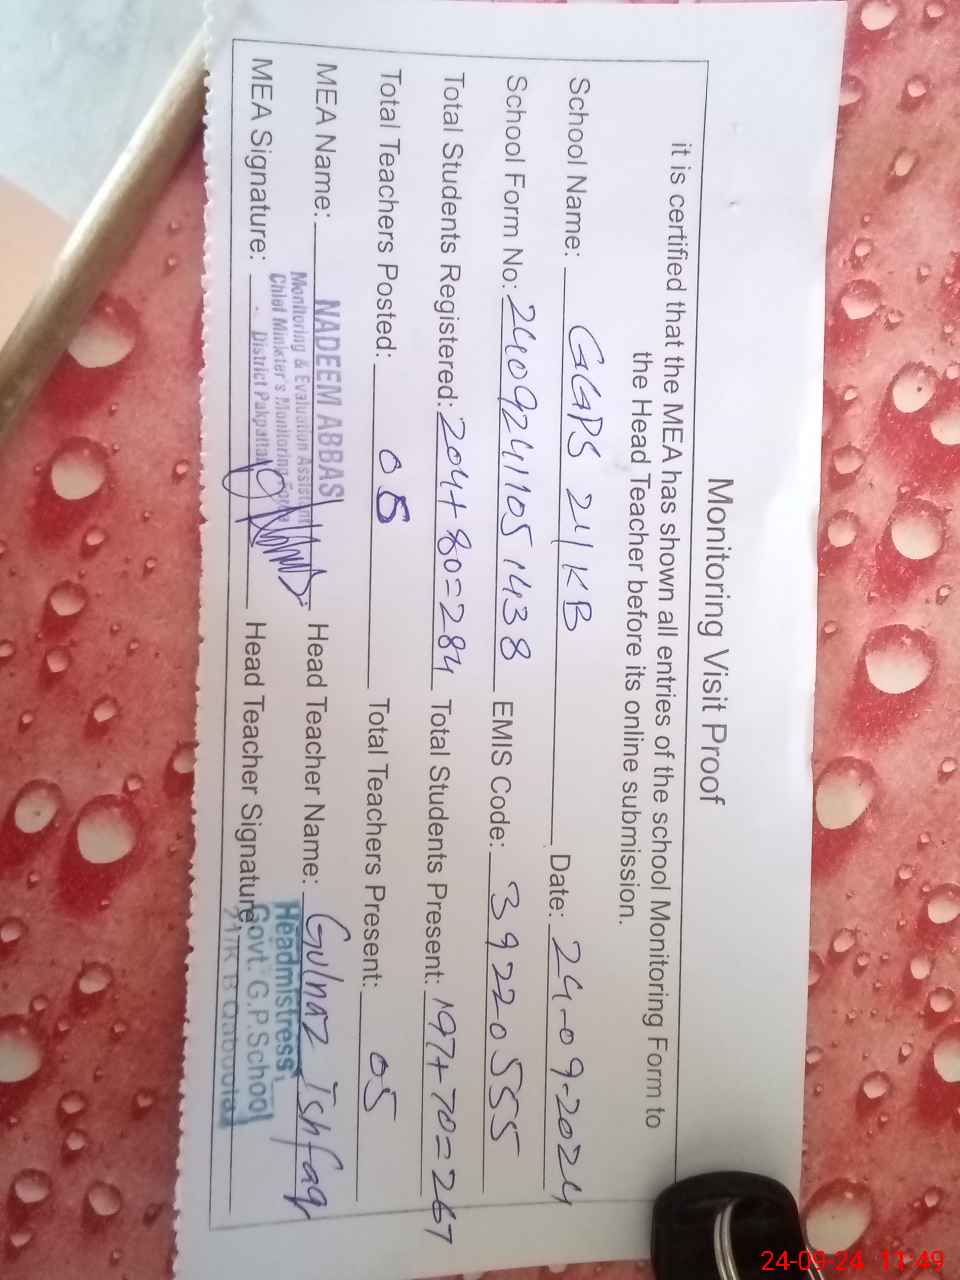 Monitoring Visit Proof
it is certified that the MEA has shown all entries of the school Monitoring Form to
the Head Teacher before its online submission.
School Name: GGPS 21 KB Date: 24-09-2024
School Form No: 24092411051438 EMIS Code: 39220555
Total Students Registered: 204+80=284 Total Students Present: 197+70=267
Total Teachers Posted: 05 Total Teachers Present: 05
MEA Name: NADEEM ABBAS Head Teacher Name: Gulnaz Ishfaq
Monitoring & Evaluation Assistant
Chief Minister's Monitoring Force
District Pakpattan
MEA Signature: Head Teacher Signature:
Headmistress
Govt. G.P.School
21/K B
24-09-24 11:49